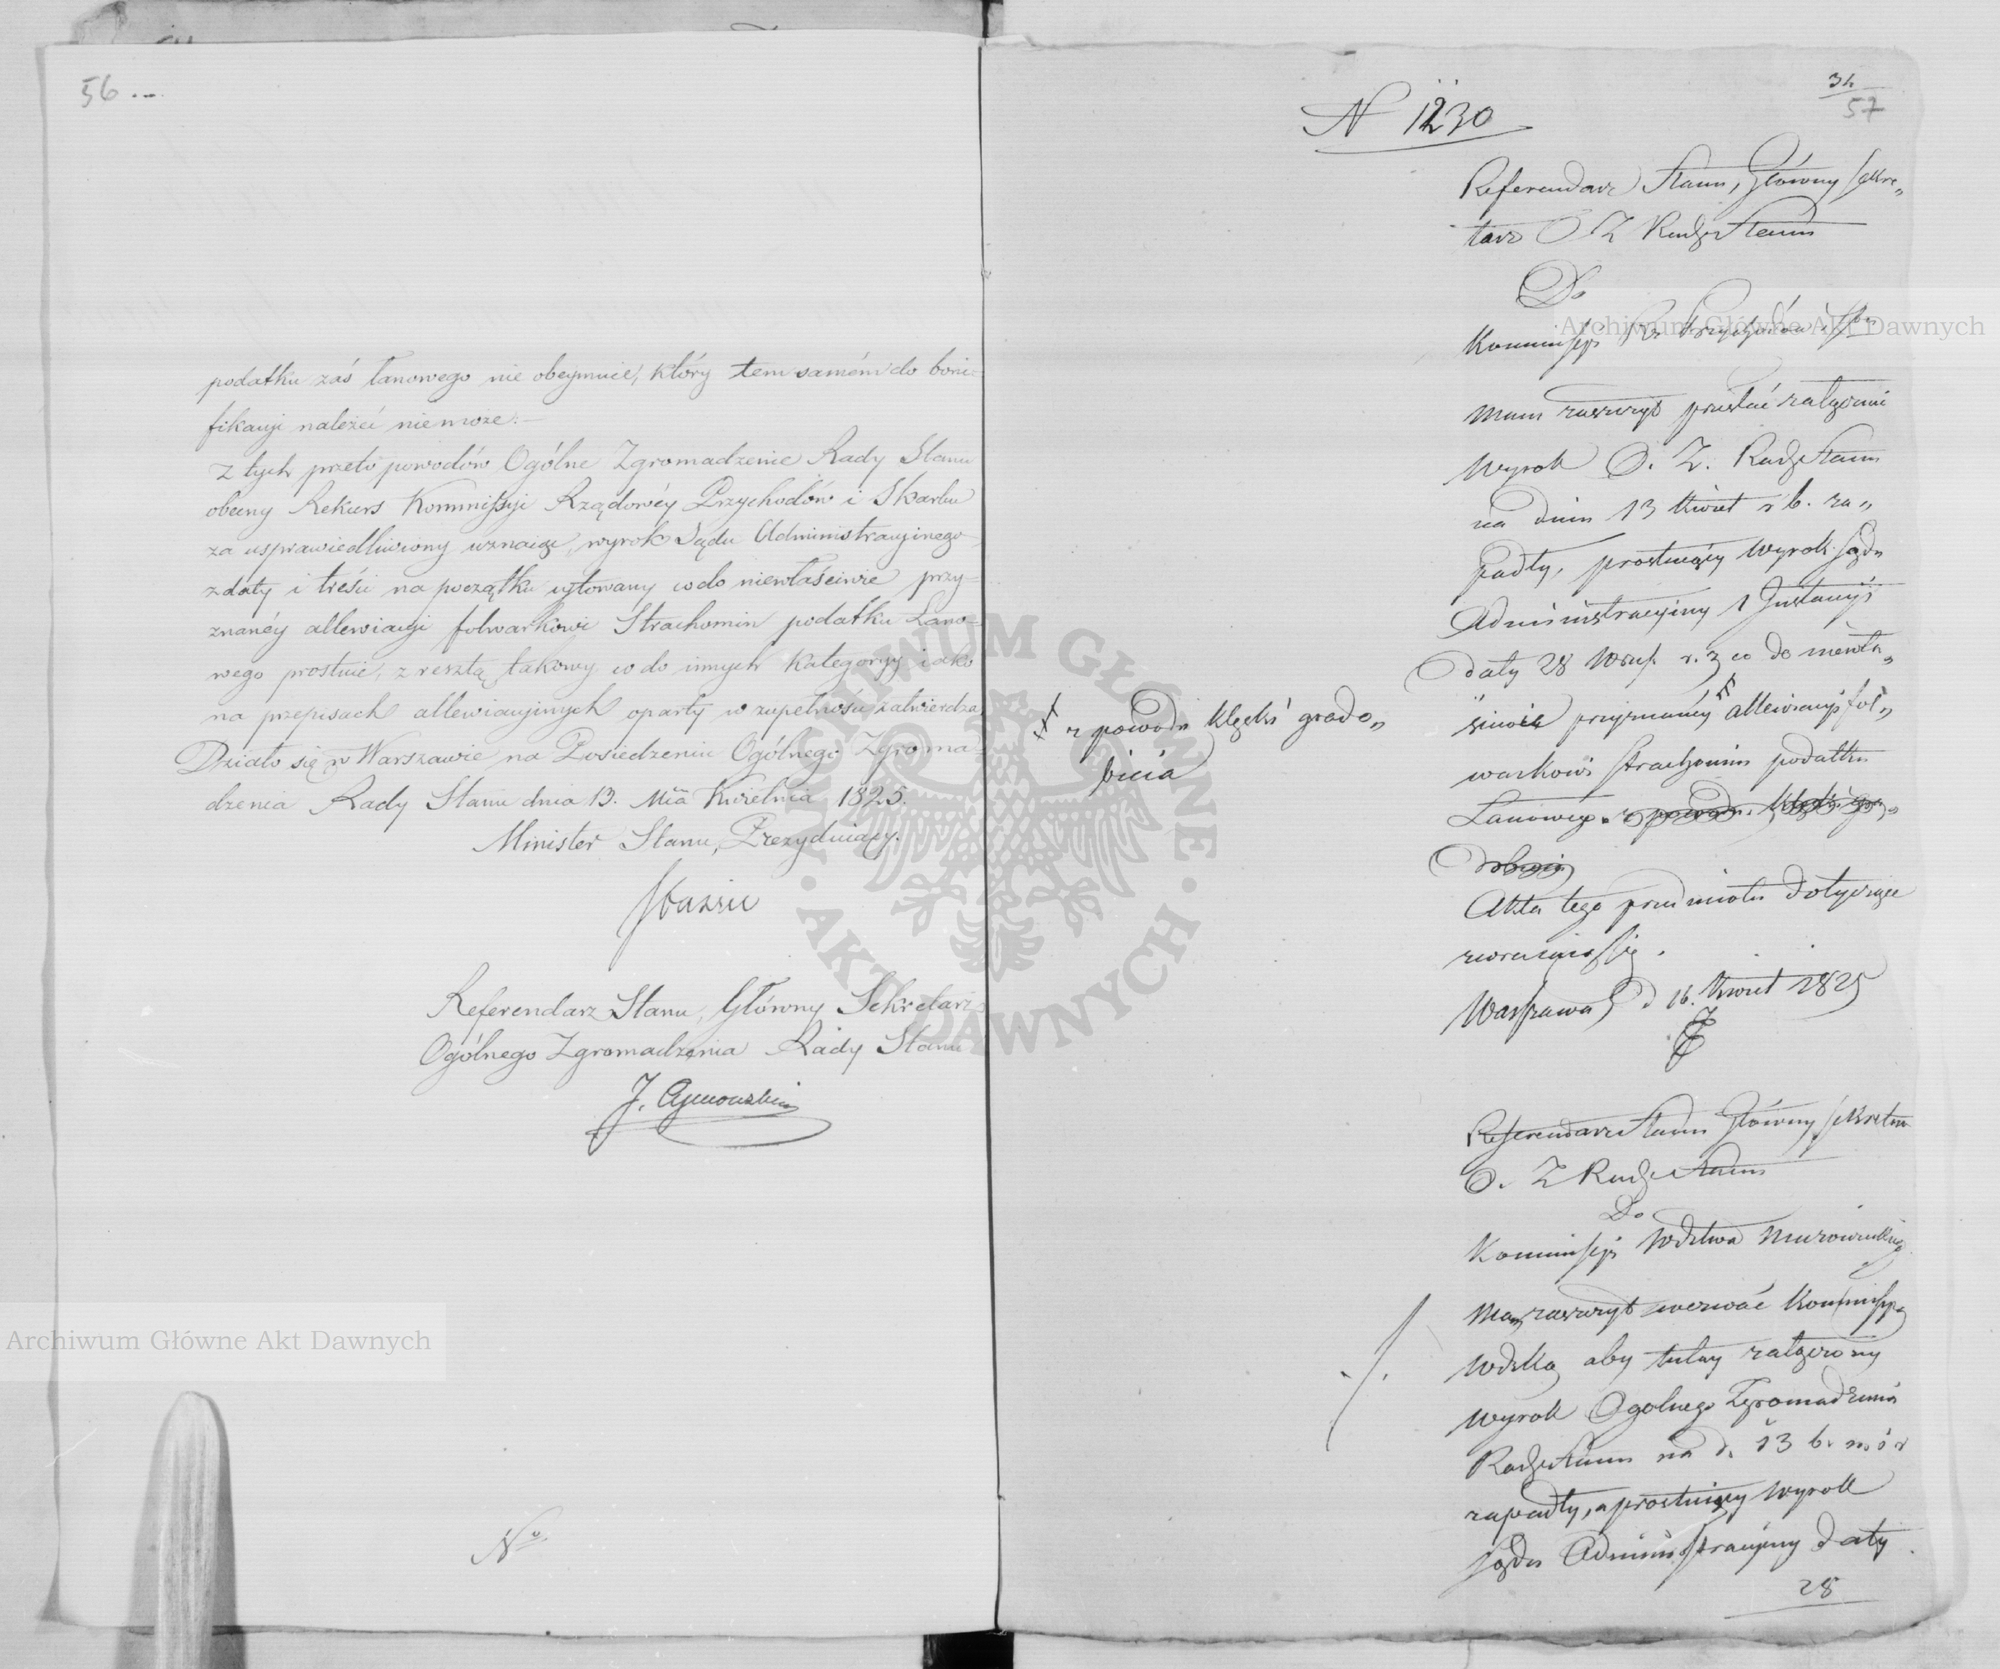 56
podatku zaś łanowego nie obeymuie, który tem samém do boni-
fikacyi należeć nie może.—
Z tych przeto powodów Ogólne Zgromadzenie Rady Stanu
obecny Rekurs Kommissyi Rządowéy Przychodów i Skarbu
za usprawiedliwiony uznaiąc, wyrok Sądu Administracyinego
z daty i treści na początku cytowany co do niewłaściwie przy-
znanéy allewiacyi folwarkowi Strachomin podatku Łano-
wego prostuie, z resztą takowy co do innych kategoryy iako
na przepisach allewiacyinych oparty w zupełności zatwierdza
Działo się w Warszawie na Posiedzeniu Ogólnego Zgroma-
dzenia Rady Stanu dnia 13. Mca Kwietnia 1825.
Minister Stanu, Prezyduiący.
Staszic
Referendarz Stanu, Główny Sekretarz
Ogólnego Zgromadzenia Rady Stanu
J.
No
34
57
N 1230
Referendarz Stanu, Główny Sekre„
tarz O Z Rady Stanu
Do
Kommissyi R. Przychodów i Sku
Mam zaszczyt przesłać załączenie
Wyrok O. Z. Rady Stanu
na dniu 13 Kwiet r b. za„
padły, prostuiący Wyrok Sądu
Administracyiny 1 Instancyi
daty 28 Wrześ. r. z co do niewła„
ściwie przyznanéy # allewiacyi fol„
warkowi Strachomin podatku
Łanowego z powodu klęski gra„
dobicia
# z powodu klęski grado„
bicia
Akta tego przedmiotu dotyczące
zwracaią się.
Warszawa d 16. Kwiet 1825
Referendarz Stanu Główny Sekretarz
O. Z Rady Stanu
Do
Kommissyi Wdztwa Mazowieckiego
Mam zaszczyt wezwać Kommissyą
Wdzką aby tutay załączony
wyrok Ogolnego Zgromadzenia
Rady Stanu na d. 13 b. m i r
zapadły, a prostuiący Wyrok
Sądu Administracyiny daty
28
Archiwum Główne Akt Dawnych
Archiwum Główne Akt Dawnych
ARCHIWUM GŁÓWNE · AKT DAWNYCH ·